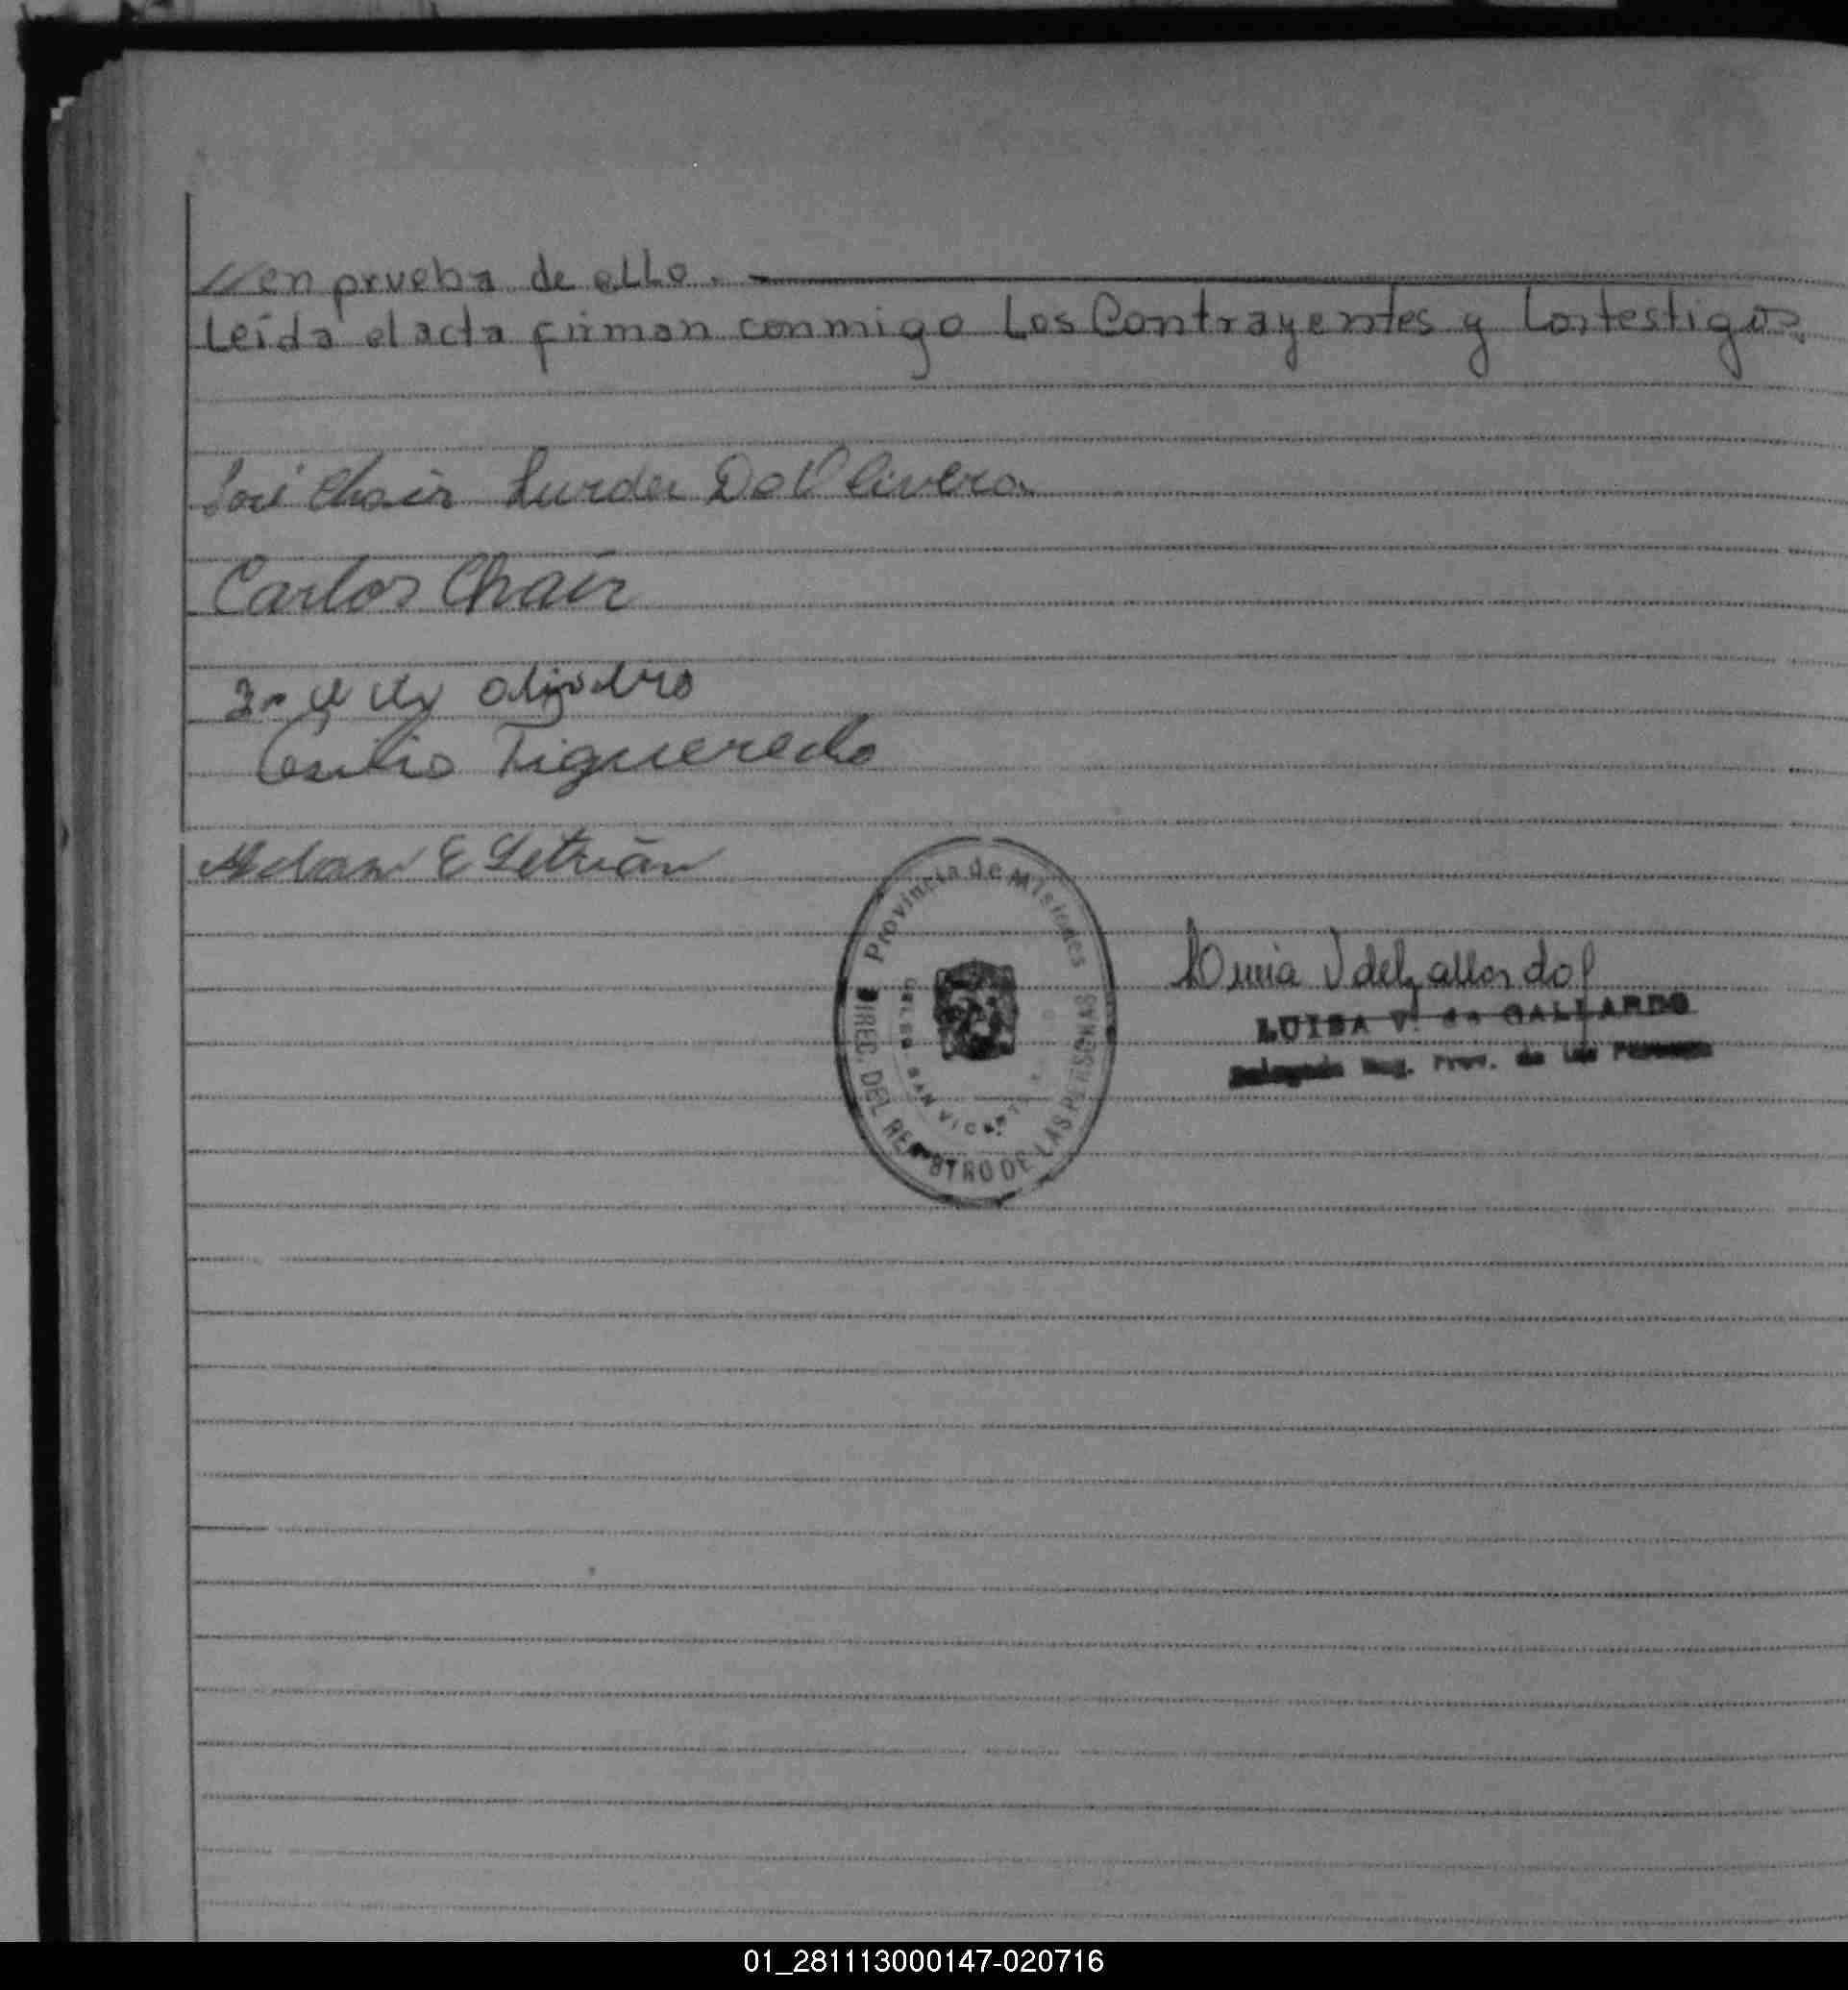 //en prueba de ello.
Leída el acta firman conmigo Los Contrayentes y Los testigos.
José Chair Lurdes Do Olivera
Carlos Chair
Cecilio Figueredo
Adan E
Provincia de Misiones
DIREC. DEL REGISTRO DE LAS PERSONAS
SAN VICENTE
LUISA V. de GALLARDO
Delegada Reg. Prov. de las Personas
01_281113000147-020716